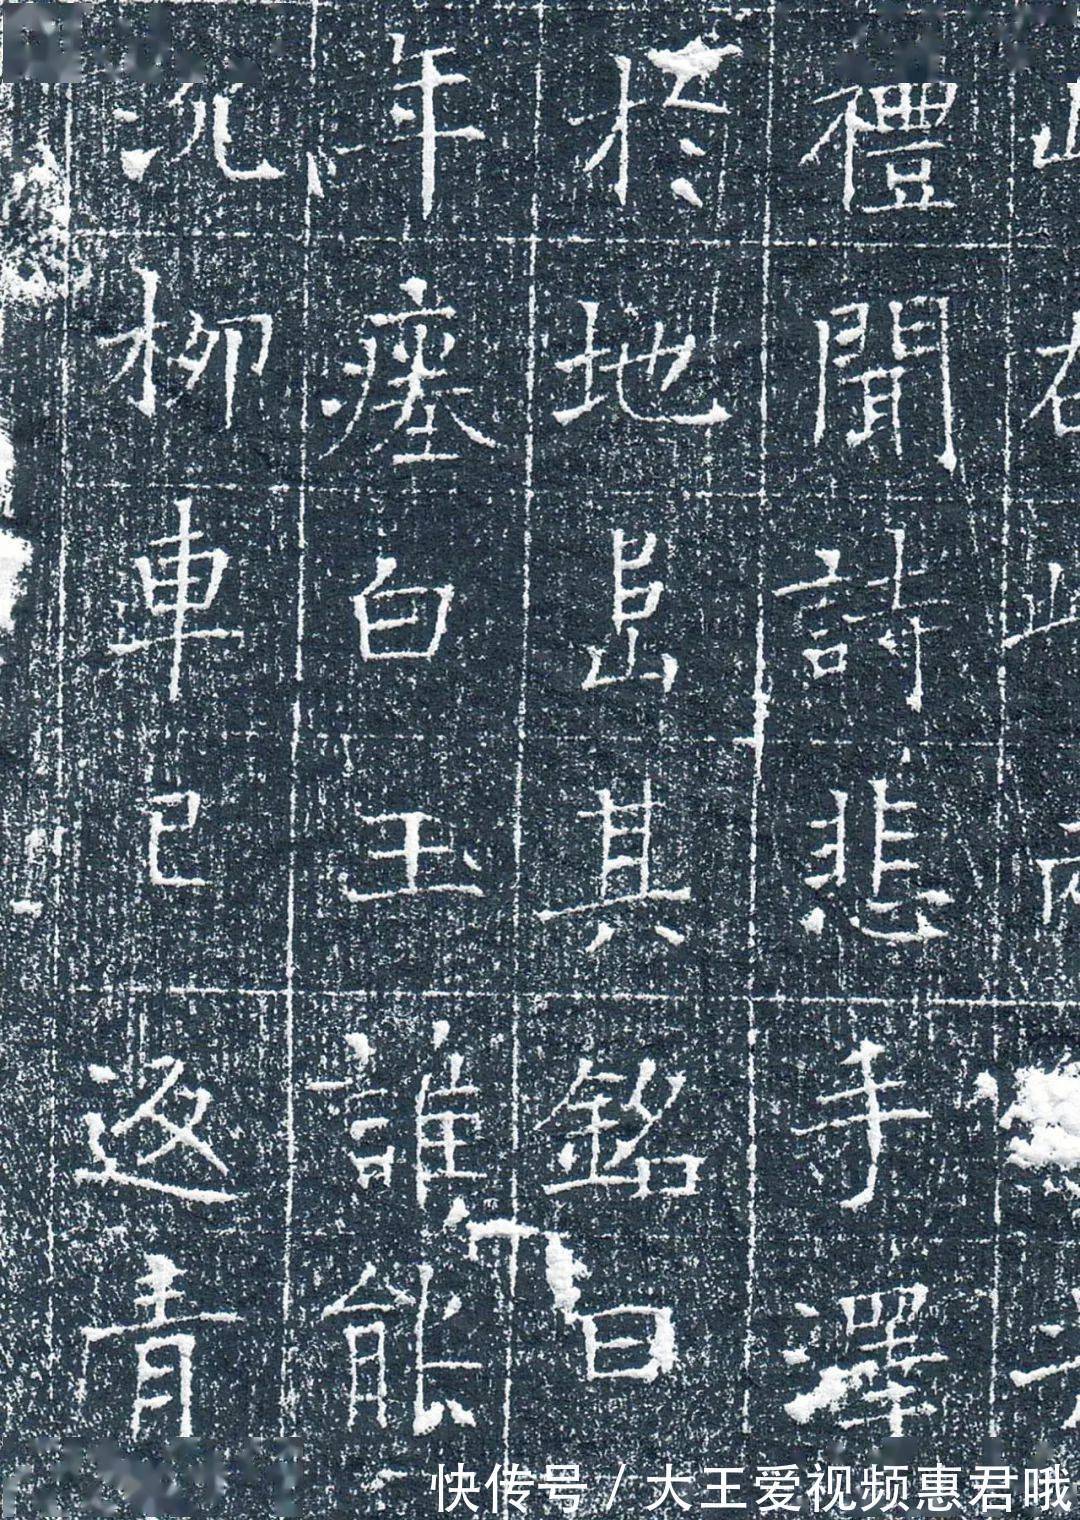 禮聞詩悲手澤
於地其銘曰
年瘞白玉誰能
柳車已返青
快传号 / 大王爱视频惠君哦